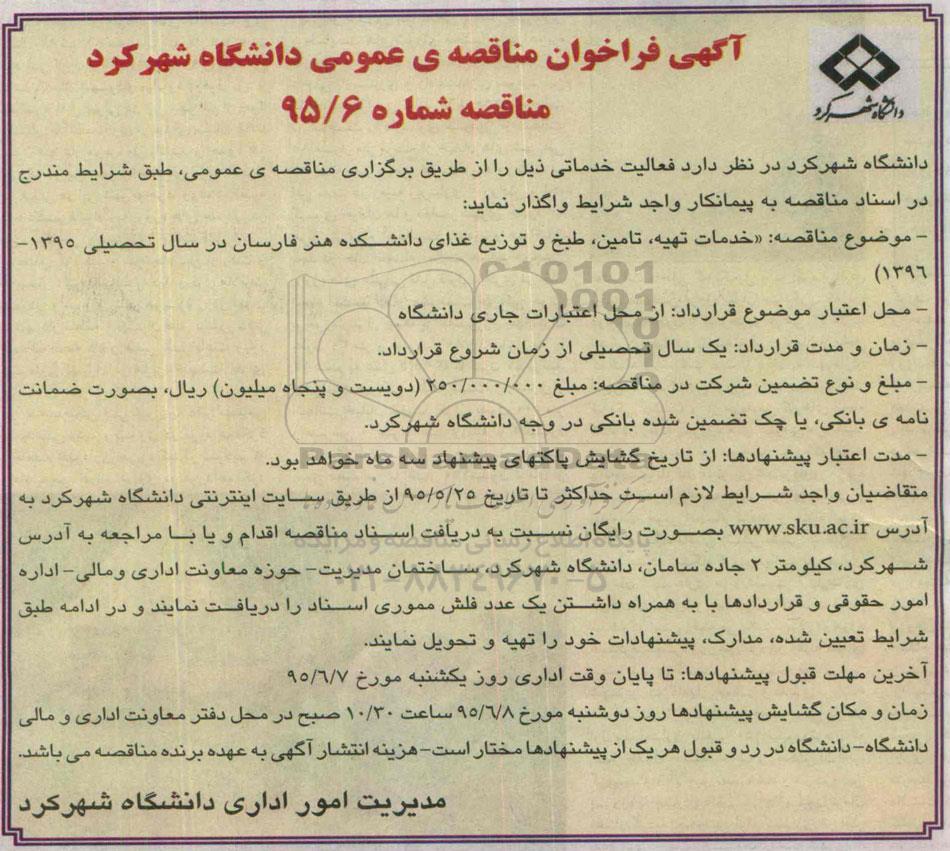 آگهی فراخوان مناقصه ی عمومی دانشگاه شهرکرد
مناقصه شماره ۹۵/۶
دانشگاه شهرکرد
دانشگاه شهرکرد در نظر دارد فعالیت خدماتی ذیل را از طریق برگزاری مناقصه ی عمومی، طبق شرایط مندرج
در اسناد مناقصه به پیمانکار واجد شرایط واگذار نماید:
- موضوع مناقصه: «خدمات تهیه، تامین، طبخ و توزیع غذای دانشکده هنر فارسان در سال تحصیلی ۱۳۹۵-
۱۳۹۶)
- محل اعتبار موضوع قرارداد: از محل اعتبارات جاری دانشگاه
- زمان و مدت قرارداد: یک سال تحصیلی از زمان شروع قرارداد.
- مبلغ و نوع تضمین شرکت در مناقصه: مبلغ ۲۵۰/۰۰۰/۰۰۰ (دویست و پنجاه میلیون) ریال، بصورت ضمانت
نامه ی بانکی، یا چک تضمین شده بانکی در وجه دانشگاه شهرکرد.
- مدت اعتبار پیشنهادها: از تاریخ گشایش پاکتهای پیشنهاد سه ماه خواهد بود.
متقاضیان واجد شرایط لازم است حداکثر تا تاریخ ۹۵/۵/۲۵ از طریق سایت اینترنتی دانشگاه شهرکرد به
آدرس www.sku.ac.ir بصورت رایگان نسبت به دریافت اسناد مناقصه اقدام و یا با مراجعه به آدرس
شهرکرد، کیلومتر ۲ جاده سامان، دانشگاه شهرکرد، ساختمان مدیریت- حوزه معاونت اداری ومالی- اداره
امور حقوقی و قراردادها با به همراه داشتن یک عدد فلش مموری اسناد را دریافت نمایند و در ادامه طبق
شرایط تعیین شده، مدارک، پیشنهادات خود را تهیه و تحویل نمایند.
آخرین مهلت قبول پیشنهادها: تا پایان وقت اداری روز یکشنبه مورخ ۹۵/۶/۷
زمان و مکان گشایش پیشنهادها روز دوشنبه مورخ ۹۵/۶/۸ ساعت ۱۰/۳۰ صبح در محل دفتر معاونت اداری و مالی
دانشگاه- دانشگاه در رد و قبول هر یک از پیشنهادها مختار است- هزینه انتشار آگهی به عهده برنده مناقصه می باشد.
مدیریت امور اداری دانشگاه شهرکرد